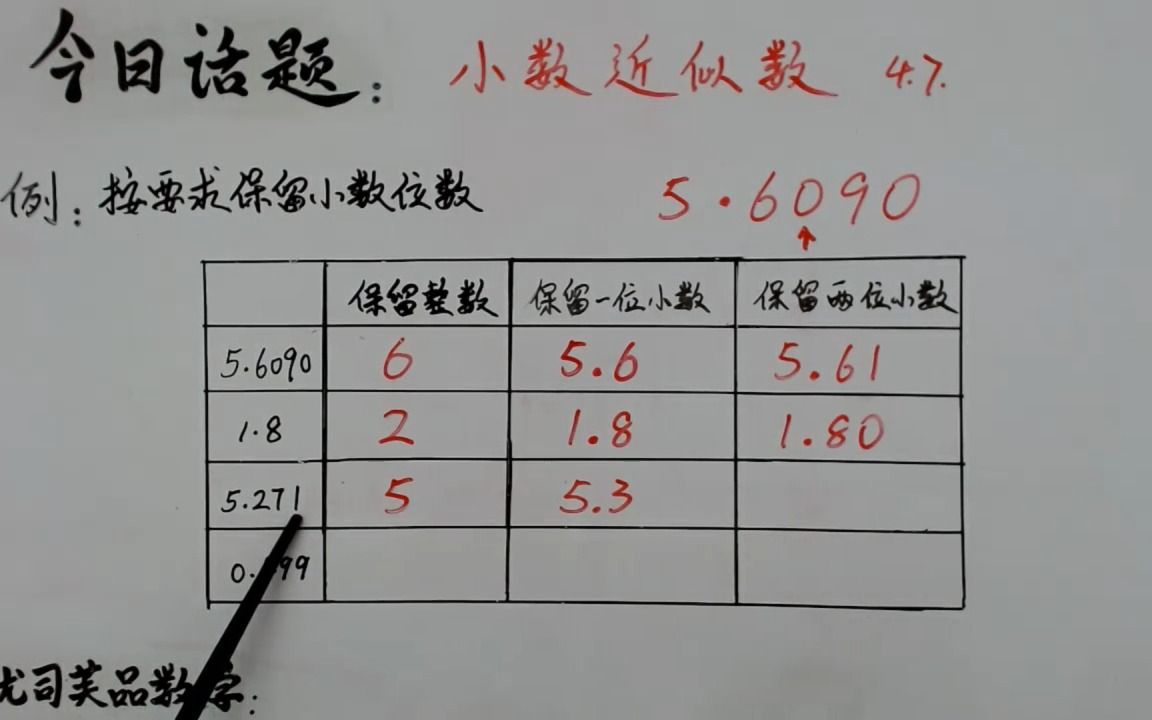 今日话题：小数近似数 4.7.
例：按要求保留小数位数 5.6090
保留整数 保留一位小数 保留两位小数
5.6090 6 5.6 5.61
1.8 2 1.8 1.80
5.271 5 5.3
0. 99
司芙品数学：